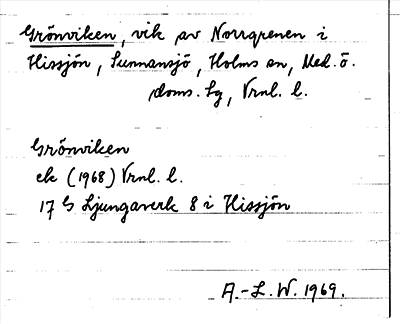 Grönviken, vik av Norrgrenen i
Hissjön, Sunnansjö, Holms sn, Med. ö.
doms. lg, Vrnl. l.
Grönviken
ek (1968) Vrnl. l.
17 G Ljungaverk 8 i Hissjön
A.-L. W. 1969.